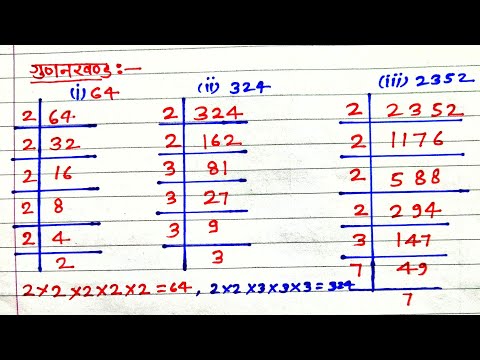 गुणनखण्ड :-
(i) 64 (ii) 324 (iii) 2352
2 64 2 324 2 2352
2 32 2 162 2 1176
2 16 3 81 2 588
2 8 3 27 2 294
2 4 3 9 3 147
2 3 7 49
2×2×2×2×2=64, 2×2×3×3×3=324
7